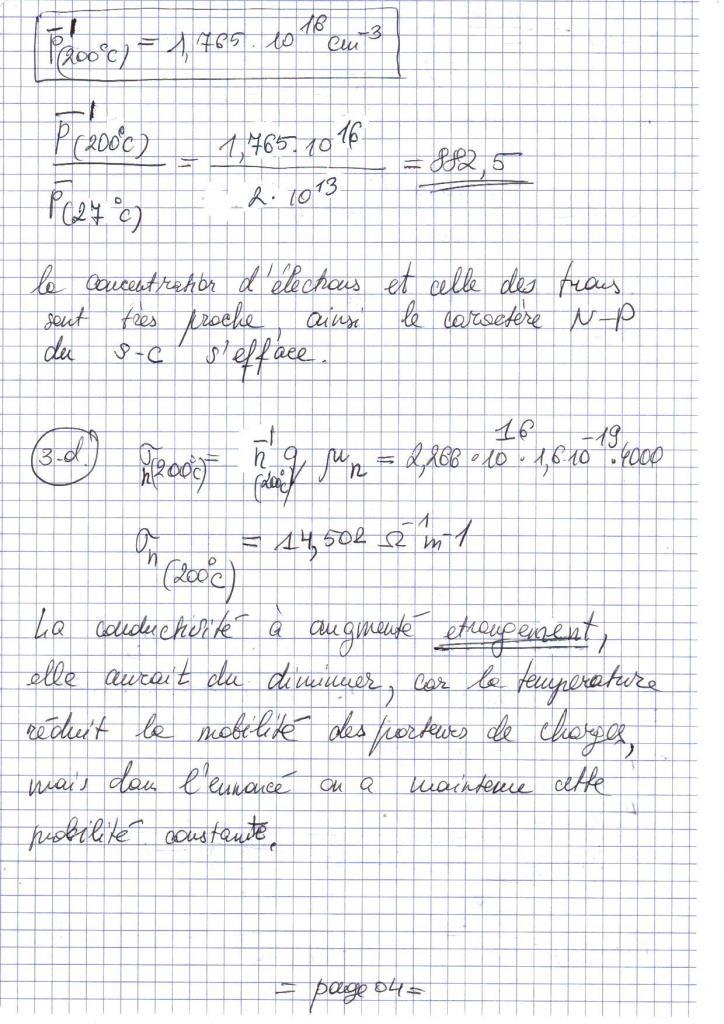 P̄'(200°C) = 1,765 · 10^16 cm^-3
P̄'(200°C) / P̄(27°C) = 1,765 · 10^16 / 2 · 10^13 = 882,5
la concentration d'électrons et celle des trous
sont très proche, ainsi le caractère N-P
du S-C s'efface.
3-d. σn(200°C) = n̄'(200°C) q μn = 2,266 · 10^16 · 1,6 10^-19 · 4000
σn(200°C) = 14,502 Ω^-1 m^-1
La conductivité à augmenté etrangement,
elle aurait du diminuer, car la temperature
réduit la mobilité des porteurs de charges,
mais dans l'ennoncé on a maintenu cette
mobilité constante.
= page 04 =